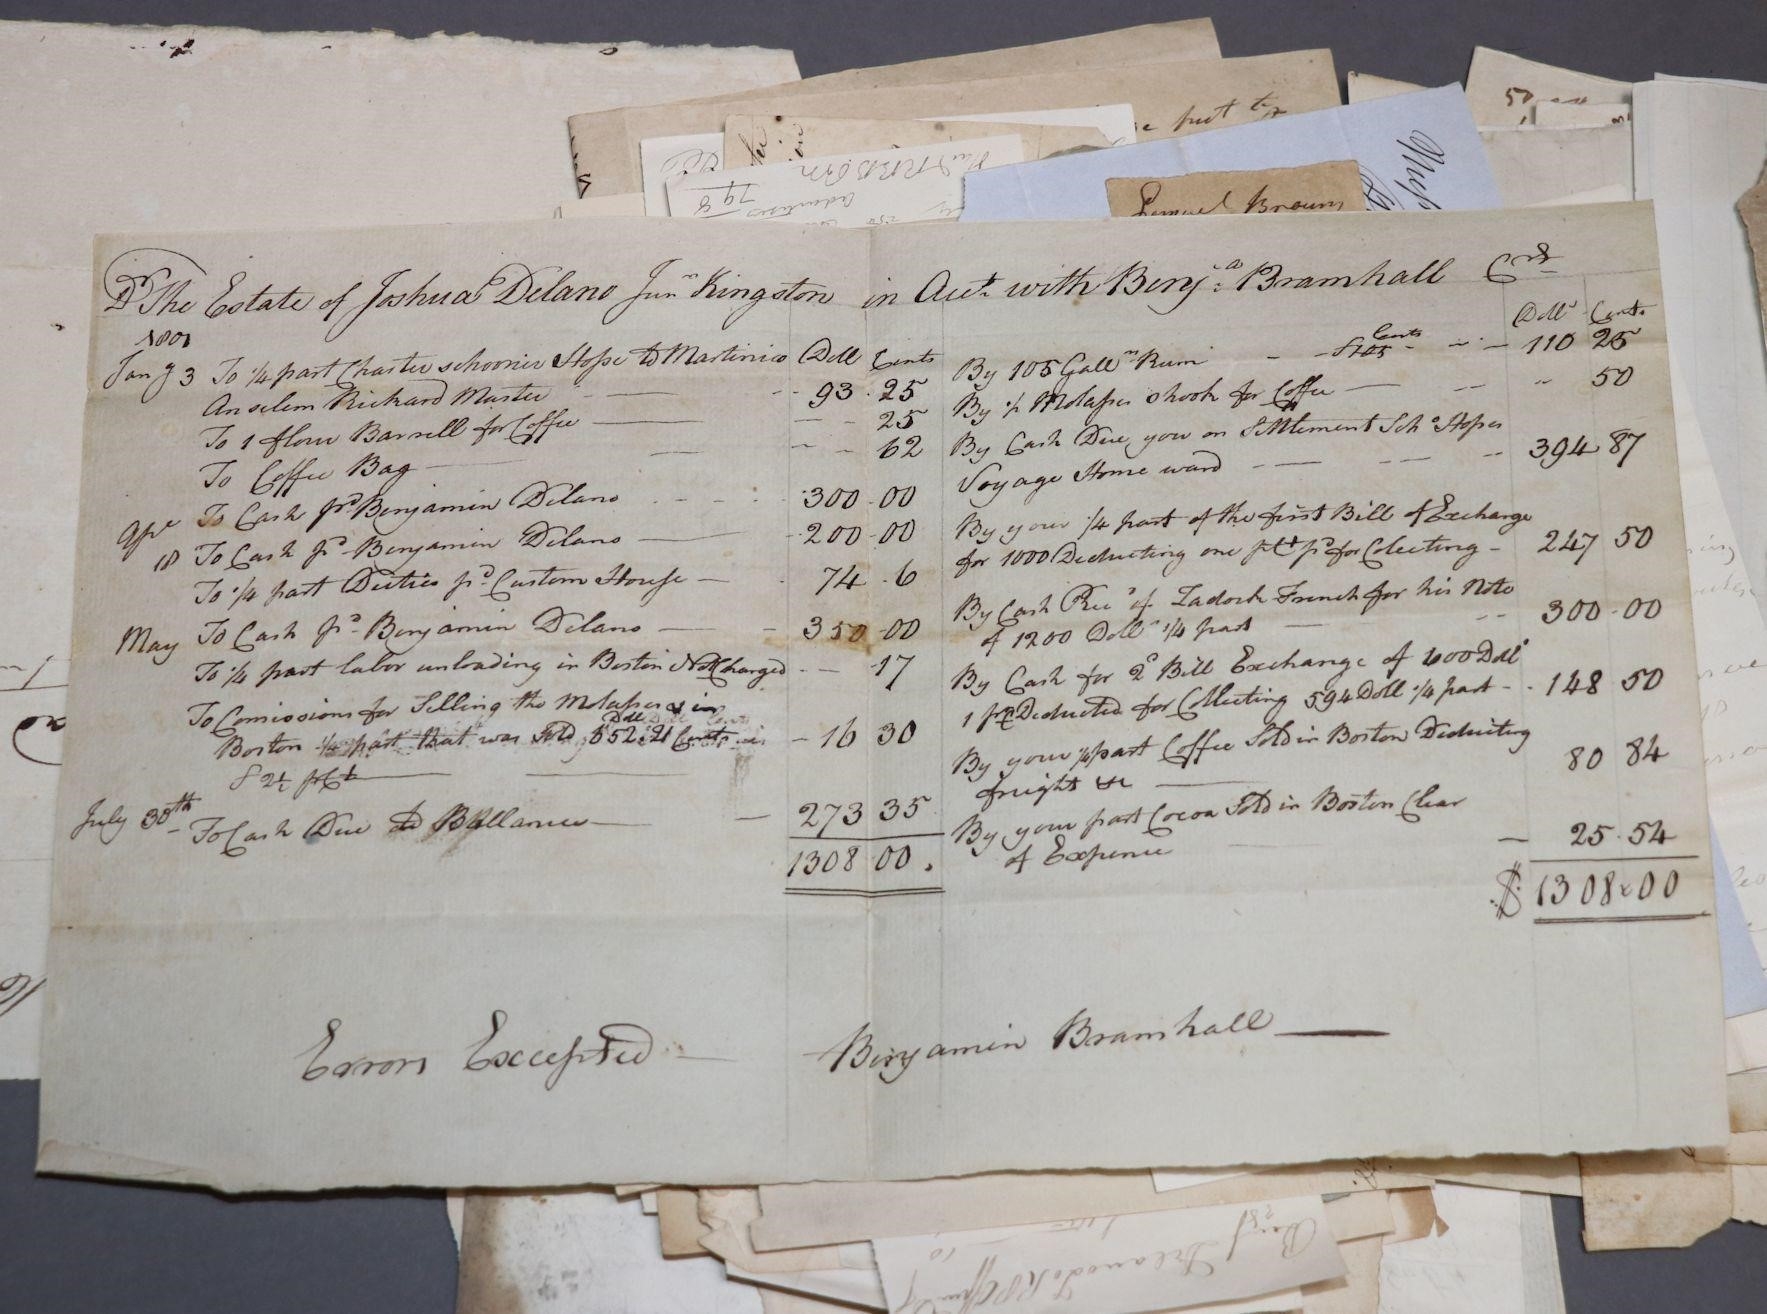 50
Samuel Brown
Dr The Estate of Joshua Delano Junr Kingston in Acct with Benja Bramhall Cr
1801
Jany 3 To 1/4 part Charter schooner Hope to Martinico Doll Cents
Anselem Rickard Master 93 . 25
To 1 flour Barrell for Coffee 25
To Coffee Bag 62
To Cash pd Benjamin Delano 300 . 00
Apr 18 To Cash pd Benjamin Delano 200 . 00
To 1/4 part Duties pd Custom House 74 . 6
May To Cash pd Benjamin Delano 350 . 00
To 1/4 part labor unloading in Boston Not Charged 17
To Comissions for Selling the Molasses in
Boston 1/4 part that was Sold 652:21 Cents
@ 2 1/2 pCt 16 30
July 30th To Cash Due to Ballance 273 35
1308 00 .
Dolls Cents
By 105 Gallns Rum Cents 110 25
By Molasses shook for Coffee 50
By Cash Due you on Settlement Schr Hopes
Voyage Home ward 394 87
By your 1/4 part of the first Bill of Exchange
for 1000 Deducting one pCt pd for Colecting 247 50
By Cash Recd of Zadock French for his Note
of 1200 Dolls 1/4 part 300 . 00
By Cash for 2d Bill Exchange of 600 Doll
1 pCt Deducted for Collecting 594 Doll 1/4 part 148 50
By your 1/4 part Coffee Sold in Boston Deducting
freight &c 80 84
By your part Cocoa Sold in Boston Clear
of Expence 25 . 54
$ 1308 00
Errors Excepted
Benjamin Bramhall